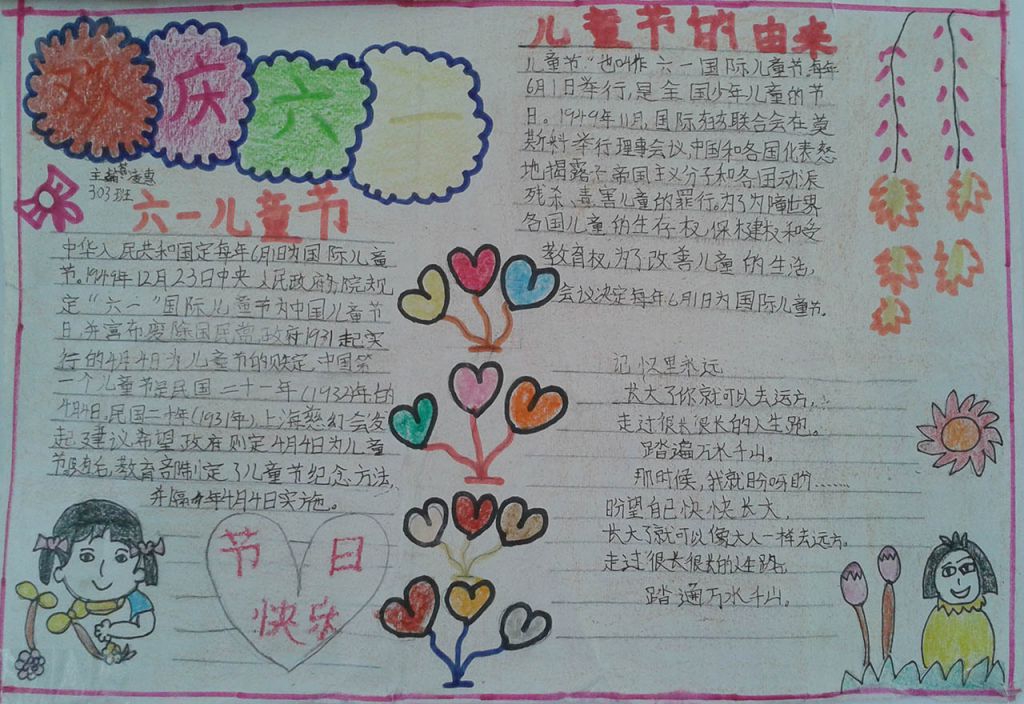 欢庆六一
主编
303班
六一儿童节
中华人民共和国定每年6月1日为国际儿童
节。1949年12月23日中央人民政府政院规
定“六一”国际儿童节为中国儿童节
日,并宣布废除国民党政府1931起实
行的4月4日为儿童节的规定,中国第
一个儿童节是民国二十一年(1932)年的
4月4日,民国二十年(1931年),上海慈幼会发
起建议,希望政府则定4月4日为儿童
教育部制定了儿童节纪念方法,
并隔年4月4日实施。
节日
快乐
儿童节的由来
儿童节“也叫作六一国际儿童节,每年
6月1日举行,是全国少年儿童的节
日。1949年11月,国际妇女联合会在莫
斯科举行理事会议,中国和各国代表怒
地揭露了帝国主义分子和各国动派
残杀、毒害儿童的罪行。为了为障世界
各国儿童的生存权,保健权和受
教育权,为了改善儿童的生活,
会议决定每年6月1日为国际儿童节。
记忆里永远
长大了你就可以去远方,
走过很长很长的人生路。
踏遍万水千山。
那时候,我就盼呀盼……
盼望自己快快长大,
长大了就可以像大人一样去远方。
走过很长很长的人生路
踏遍万水千山。